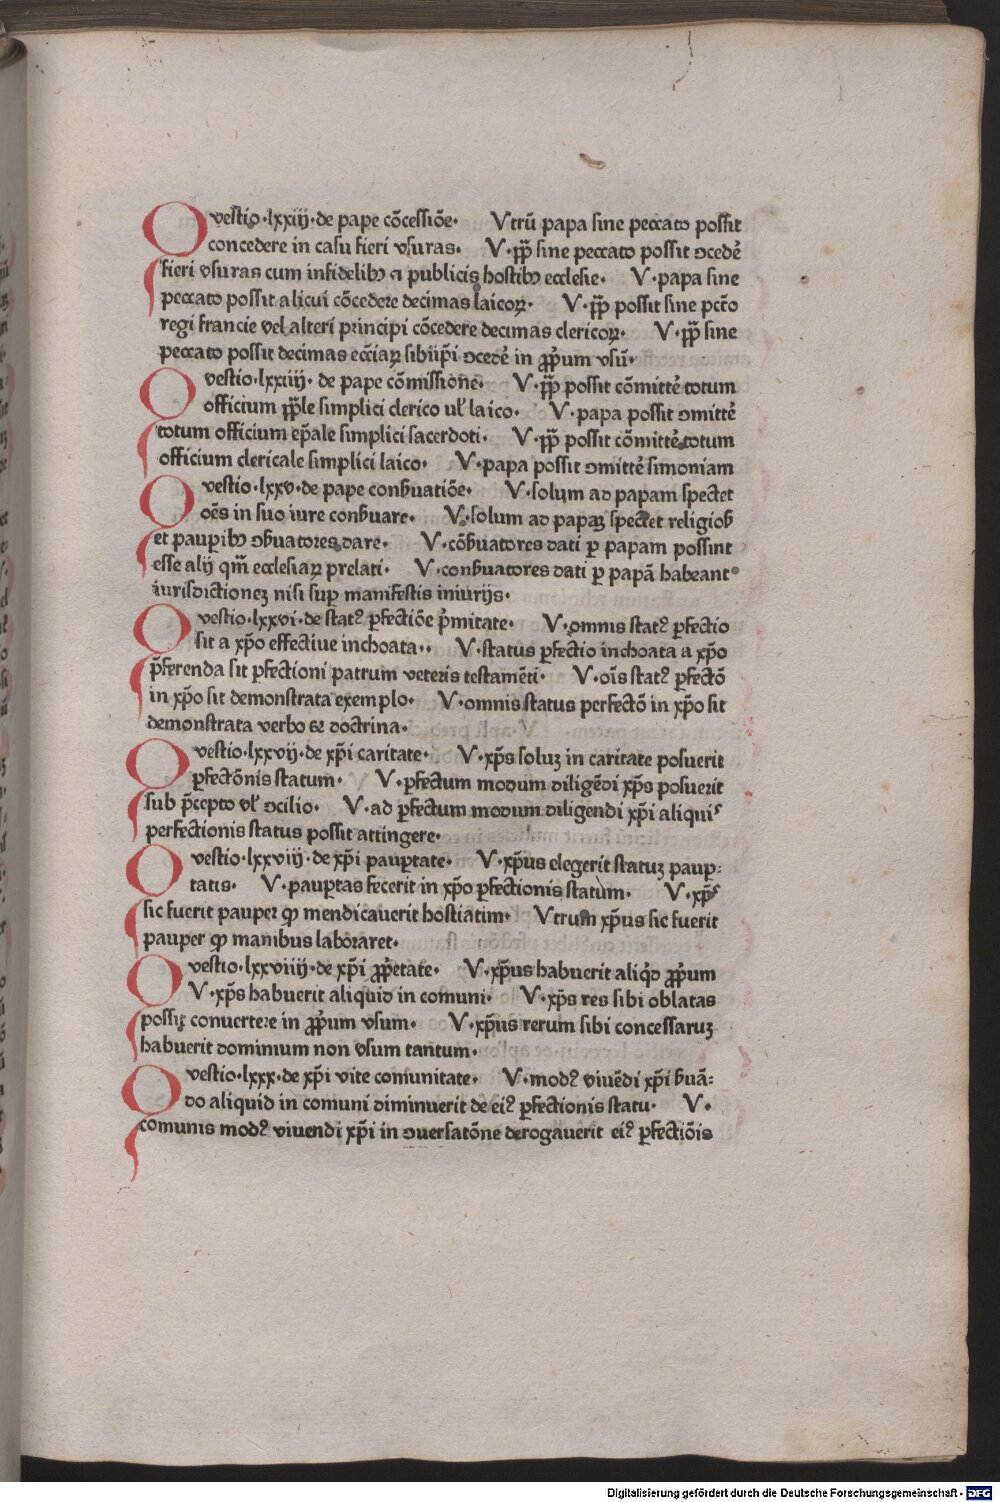 Questio·lxxiij·de pape cõcessiõe· Vtrũ papa sine peccato possit
concedere in casu fieri vsuras· V·pp̃ sine peccato possit ↄcedẽ
fieri vsuras cum infidelibꝫ ⁊ publicis hostibꝫ ecclesie· V·papa sine
peccato possit alicui cõcedere decimas laicoꝝ· V·pp̃ possit sine pctõ
regi francie vel alteri principi cõcedere decimas clericoꝝ· V·pp̃ sine
peccato possit decimas eccĩaꝝ sibiip̃i ↄcedẽ in ꝓp̃um vsũ·
Questio·lxxiiij· de pape cõmissione· V·pp̃ possit cõmittẽ totum
officium pp̃le simplici clerico ul̃ laico· V·papa possit ↄmittẽ
totum officium ep̃ale simplici sacerdoti· V·pp̃ possit cõmittẽ totum
officium clericale simplici laico· V·papa possit ↄmittẽ simoniam
Questio·lxxv·de pape conẜuatiõe· V·solum ad papam spectet
oẽs in suo iure conẜuare· V·solum ad papaꝫ spectet religioẜ
et pauꝑibꝫ ↄẜuatores dare· V·cõẜuatores dati ꝑ papam possint
esse alij qm̃ ecclesiaꝝ prelati· V·conẜuatores dati ꝑ papã habeant
iurisdictioneꝫ nisi suꝑ manifestis iniurijs·
Questio·lxxvi·de statꝰ ꝑfectiõe p̃mitate· V·omnis statꝰ ꝑfectio
sit a xp̃o effectiue inchoata·· V·status ꝑfectio inchoata a xp̃o
p̃ferenda sit ꝑfectioni patrum veteris testamẽti· V·oĩs statꝰ ꝑfectõ
in xp̃o sit demonstrata exemplo· V·omnis status perfectõ in xp̃o sit
demonstrata verbo ⁊ doctrina·
Questio·lxxvij·de xp̃i caritate· V·xp̃s soluꝫ in caritate posuerit
ꝑfectõnis statum· V·ꝑfectum modum diligẽdi xp̃s posuerit
sub p̃cepto vl̃ ↄcilio· V·ad ꝑfectum modum diligendi xp̃i aliquiˢ
perfectionis status possit attingere·
Questio·lxxviij·de xp̃i pauꝑtate· V·xp̃us elegerit statuꝫ pauꝑ:
tatis· V·pauꝑtas fecerit in xp̃o ꝑfectionis statum· V·xp̃ˢ
sic fuerit pauper ꝙ mendicauerit hostiatim· Vtrum xp̃us sic fuerit
pauper ꝙ manibus laboraret·
Questio·lxxviiij·de xp̃i ꝓp̃etate· V·xp̃us habuerit aliqd̃ ꝓp̃um
V·xp̃s habuerit aliquid in comuni· V·xp̃s res sibi oblatas
possit conuertere in ꝓp̃um vsum· V·xp̃us rerum sibi concessaruꝫ
habuerit dominium non vsum tantum·
Questio·lxxx·de xp̃i vite comunitate· V·modꝰ viuẽdi xp̃i ẜuã:
do aliquid in comuni diminuerit de eiꝰ ꝑfectionis statu· V·
comunis modꝰ viuendi xp̃i in ↄuersatõne derogauerit eiꝰ ꝑfectiõis
Digitalisierung gefördert durch die Deutsche Forschungsgemeinschaft - DFG